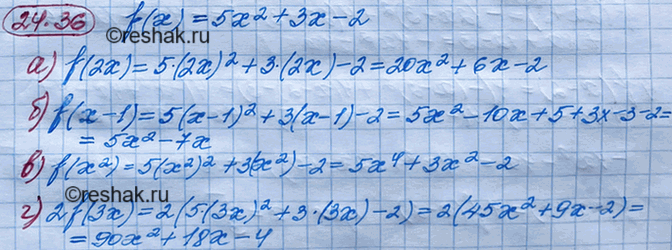 24.36 f(x) = 5x² + 3x - 2
©reshak.ru
а) f(2x) = 5·(2x)² + 3·(2x) - 2 = 20x² + 6x - 2
б) f(x-1) = 5(x-1)² + 3(x-1) - 2 = 5x² - 10x + 5 + 3x - 3 - 2 =
= 5x² - 7x
в) f(x²) = 5(x²)² + 3(x²) - 2 = 5x⁴ + 3x² - 2
©reshak.ru
г) 2f(3x) = 2(5(3x)² + 3·(3x) - 2) = 2(45x² + 9x - 2) =
= 90x² + 18x - 4